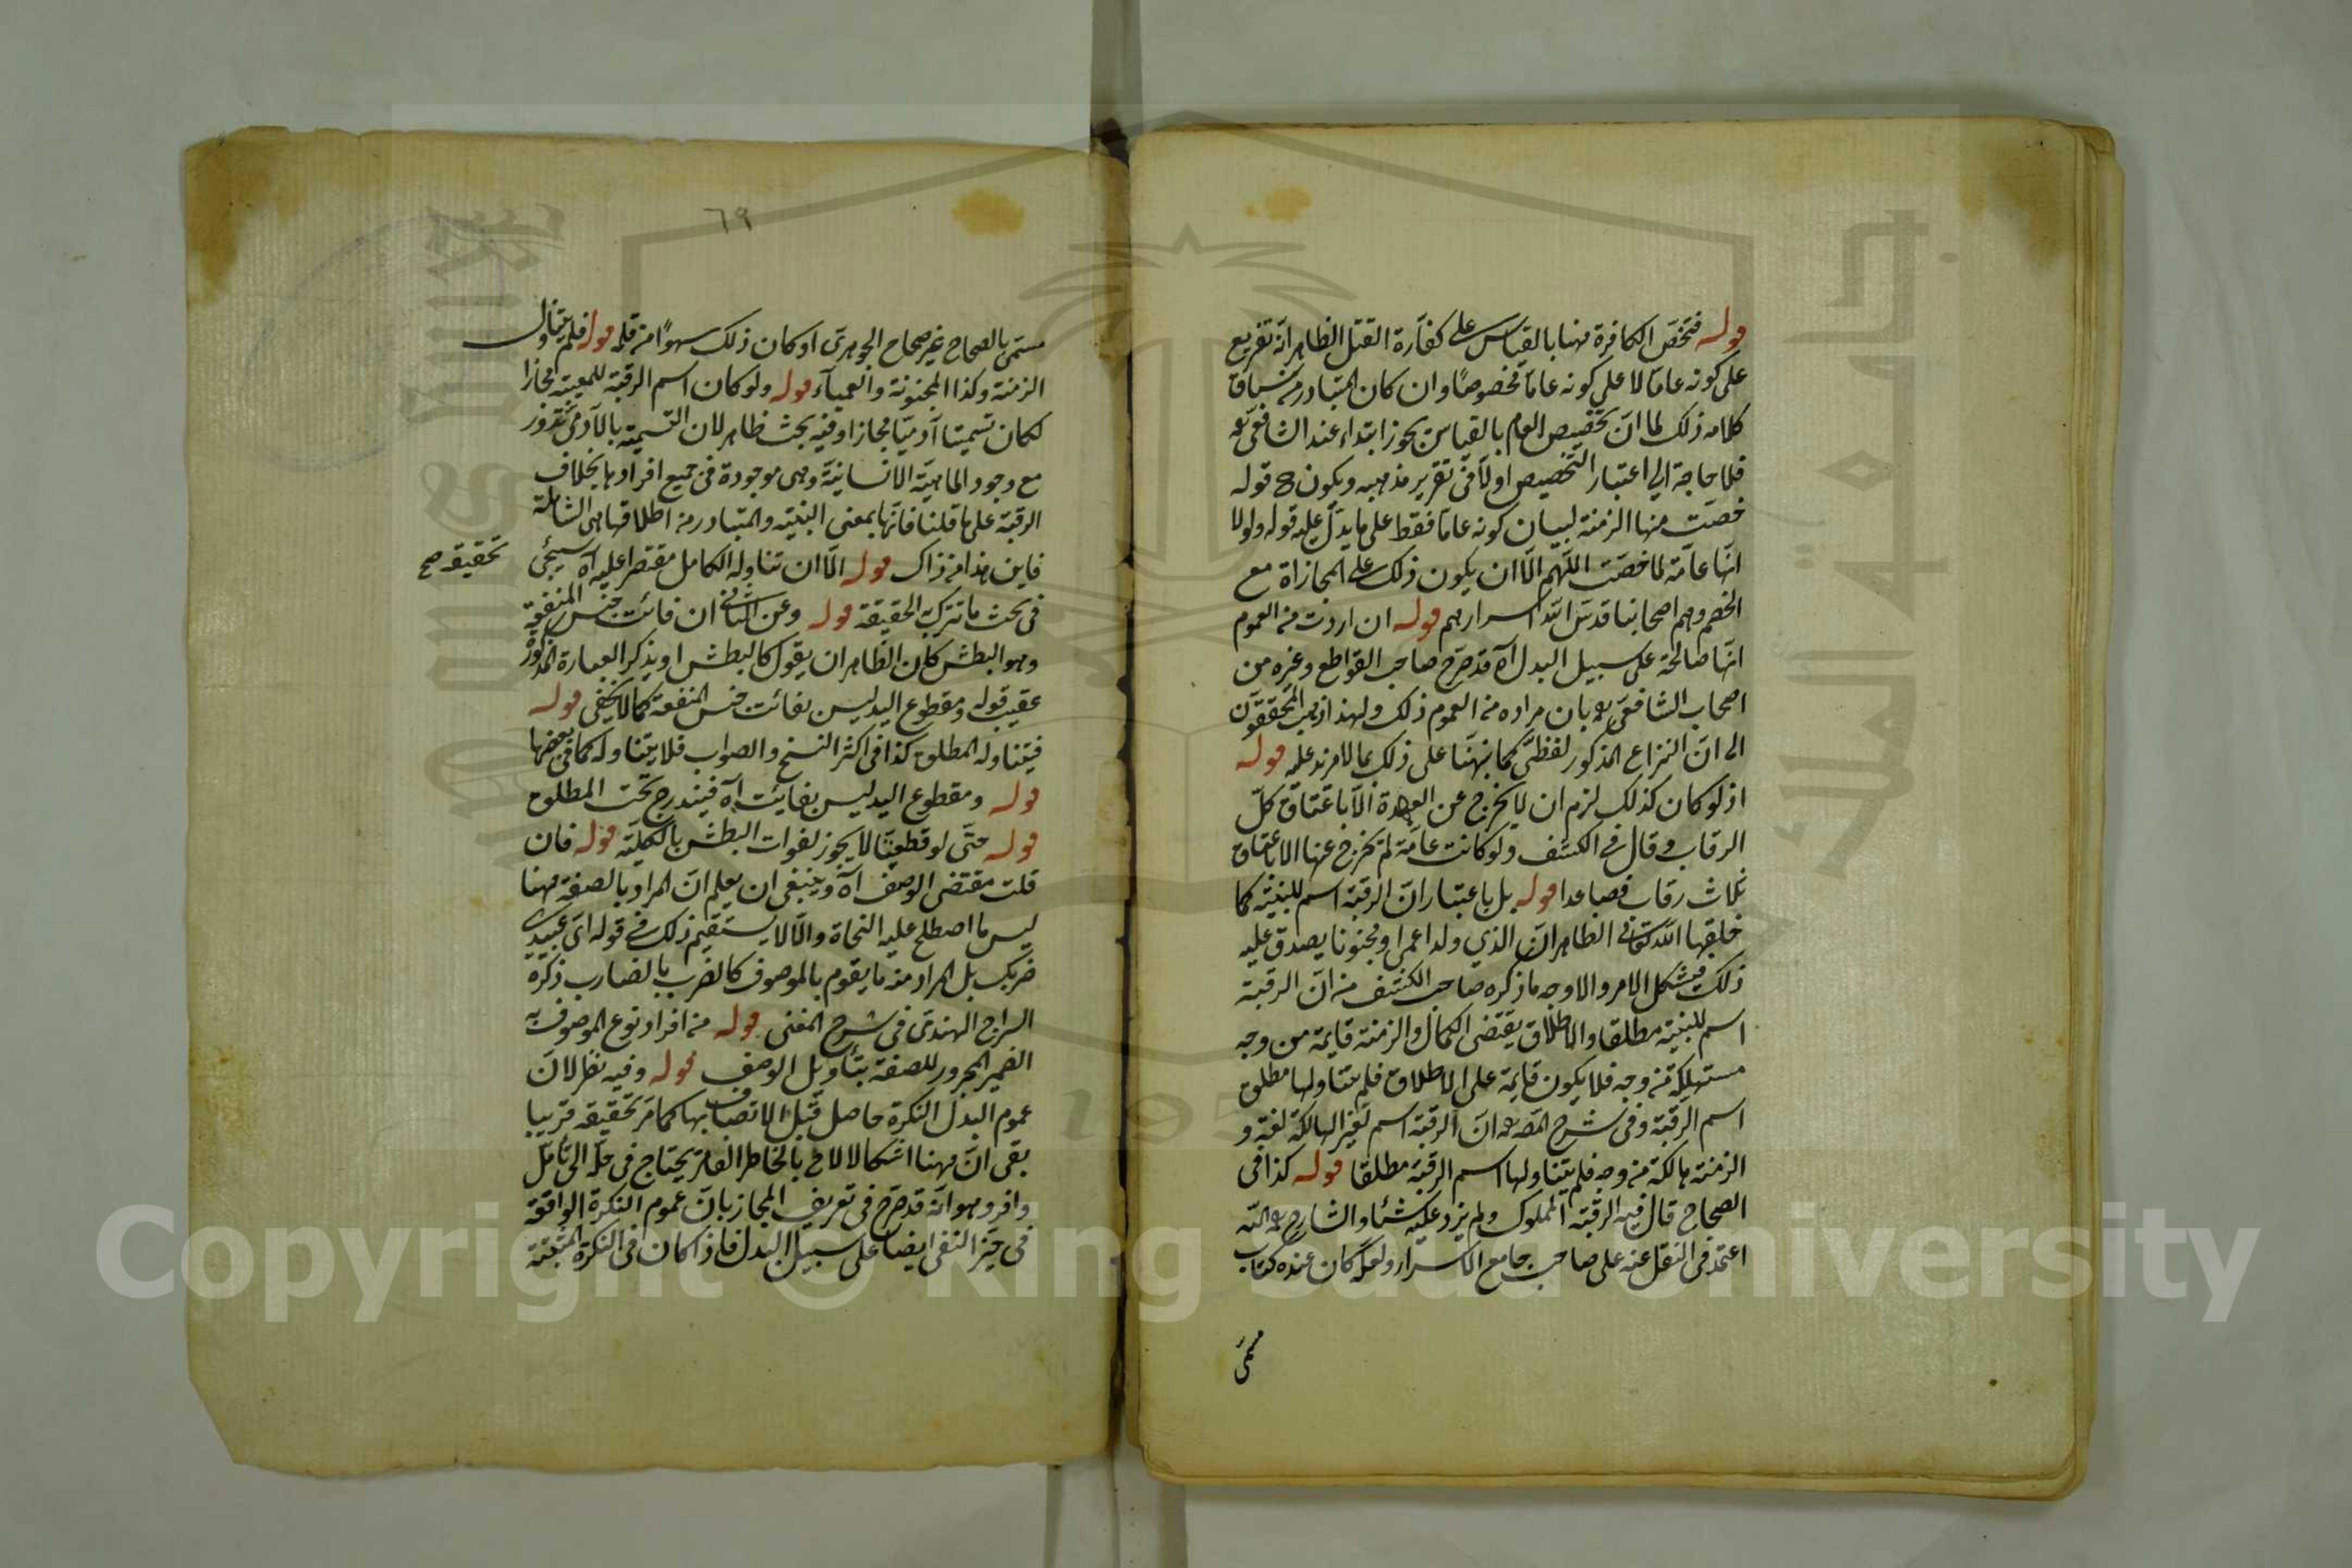 قوله فتخص الكافرة منها بالقياس على كفارة القتل الظاهر انه تفريع
على كونه عاما لا على كونه عاما مخصوصا وان كان المتبادر من سياق
كلامه ذلك لما ان تخصيص العام بالقياس يجوز ابتداء عند الشافعي رحه
فلا حاجة الى اعتبار التخصيص اولا في تقرير مذهبه ويكون ح قوله
خصت منها الزمنة لبيان كونه عاما فقط على ما يدل عليه قوله ولولا
انها عامة لما خصت اللهم الا ان يكون ذلك على المجازاة مع
الخصم وهم اصحابنا قدس الله اسرارهم قوله ان اردت من العموم
انها صالحة على سبيل البدل اه قد صرح صاحب القواطع وغيره من
اصحاب الشافعي رحه بان مراده من العموم ذلك ولهذا ذهب المحققون
الى ان النزاع المذكور لفظي كما نبهنا على ذلك بما لا مزيد عليه قوله
اذ لو كان كذلك لزم ان لا يخرج عن العهدة الا باعتاق كل
الرقاب وقال في الكشف ولو كانت عامة لم يخرج عنها الا باعتاق
ثلاث رقاب فصاعدا قوله بل باعتبار ان الرقبة اسم للبنية كما
خلقها الله تعالى الظاهر ان الذي ولد اعمى او مجنونا يصدق عليه
ذلك فيشكل الامر والاوجه ما ذكره صاحب الكشف من ان الرقبة
اسم للبنية مطلقا والاطلاق يقتضي الكمال والزمنة قايمة من وجه
مستهلكة من وجه فلا يكون قايمة على الاطلاق فلم يتناولها مطلق
اسم الرقبة وفي شرح المص رحه ان الرقبة اسم لغير الهالكة لغة و
الزمنة هالكة من وجه فلم يتناولها اسم الرقبة مطلقا قوله كذا في
الصحاح قال فيه الرقبة المملوك ولم يزد عليه شئا والشارح رحمه الله
اعتمد في النقل عنه على صاحب جامع الاسرار ولعله كان عنده كتاب
مسمى
٦٩
مسمى بالصحاح غير صحاح الجوهري او كان ذلك سهوا من قلمه قوله فلم يتناول
الزمنة وكذا المجنونة والعمياء قوله ولو كان اسم الرقبة للمعيبة مجازا
لكان تسميتنا آدميا مجازا وفيه بحث ظاهر لان التسمية بالآدمي تدور
مع وجود الماهية الانسانية وهي موجودة في جميع افرادها بخلاف
الرقبة على ما قلنا فانها بمعنى البنية والمتبادر من اطلاقها هي الشاملة
فاين هذا من ذاك قوله الا ان تناوله الكامل مقتصرا عليه اه سيجئ
تحقيقه صح
في بحث ما تترك به الحقيقة قوله وعن الثاني ان فائت جنس المنفعة
وهو البطش كان الظاهر ان يقول كالبطش او يذكر العبارة المذكورة
عقيب قوله ومقطوع اليد ليس بفائت جنس المنفعة كما لا يخفى قوله
فيتناوله المطلق كذا في اكثر النسخ والصواب فلا يتناوله كما في بعضها
قوله ومقطوع اليد ليس بفائت اه فيندرج تحت المطلق
قوله حتى لو قطعتا لا يجوز لفوات البطش بالكلية قوله فان
قلت مقتضى الوصف اه وينبغي ان يعلم ان المراد بالصفة ههنا
ليس ما اصطلح عليه النحاة والا لا يستقيم ذلك في قوله اي عبيدي
ضربك بل المراد منه ما يقوم بالموصوف كالضرب بالضارب ذكره
السراج الهندي في شرح المغني قوله من افراد نوع الموصوف به
الضمير المجرور للصفة بتأويل الوصف قوله وفيه نظر لان
عموم البدل النكرة حاصل قبل الاتصاف بها كما مر تحقيقه قريبا
بقي ان ههنا اشكالا لاح بالخاطر الفاتر يحتاج في حله الى تأمل
وافر وهو انه قد صرح في تعريف المجاز بان عموم النكرة الواقعة
في حيز النفي ايضا على سبيل البدل فاذا كان في النكرة المثبتة
Copyright © King Saud University